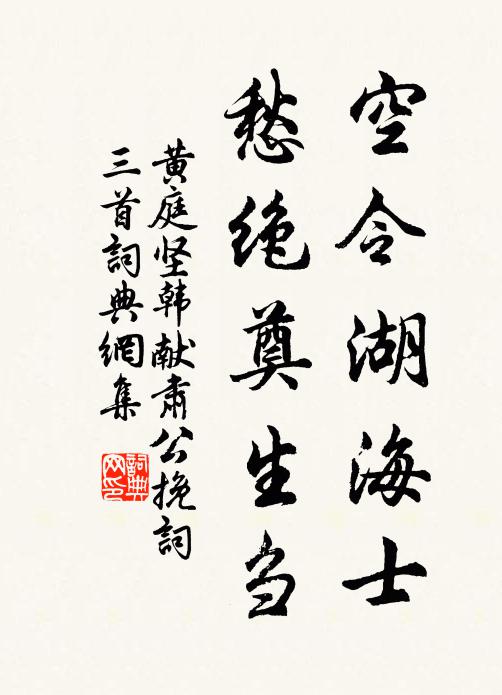 空令湖海士
愁绝奠生刍
黄庭坚韩献肃公挽詞
三首詞典網集
詞典
网印